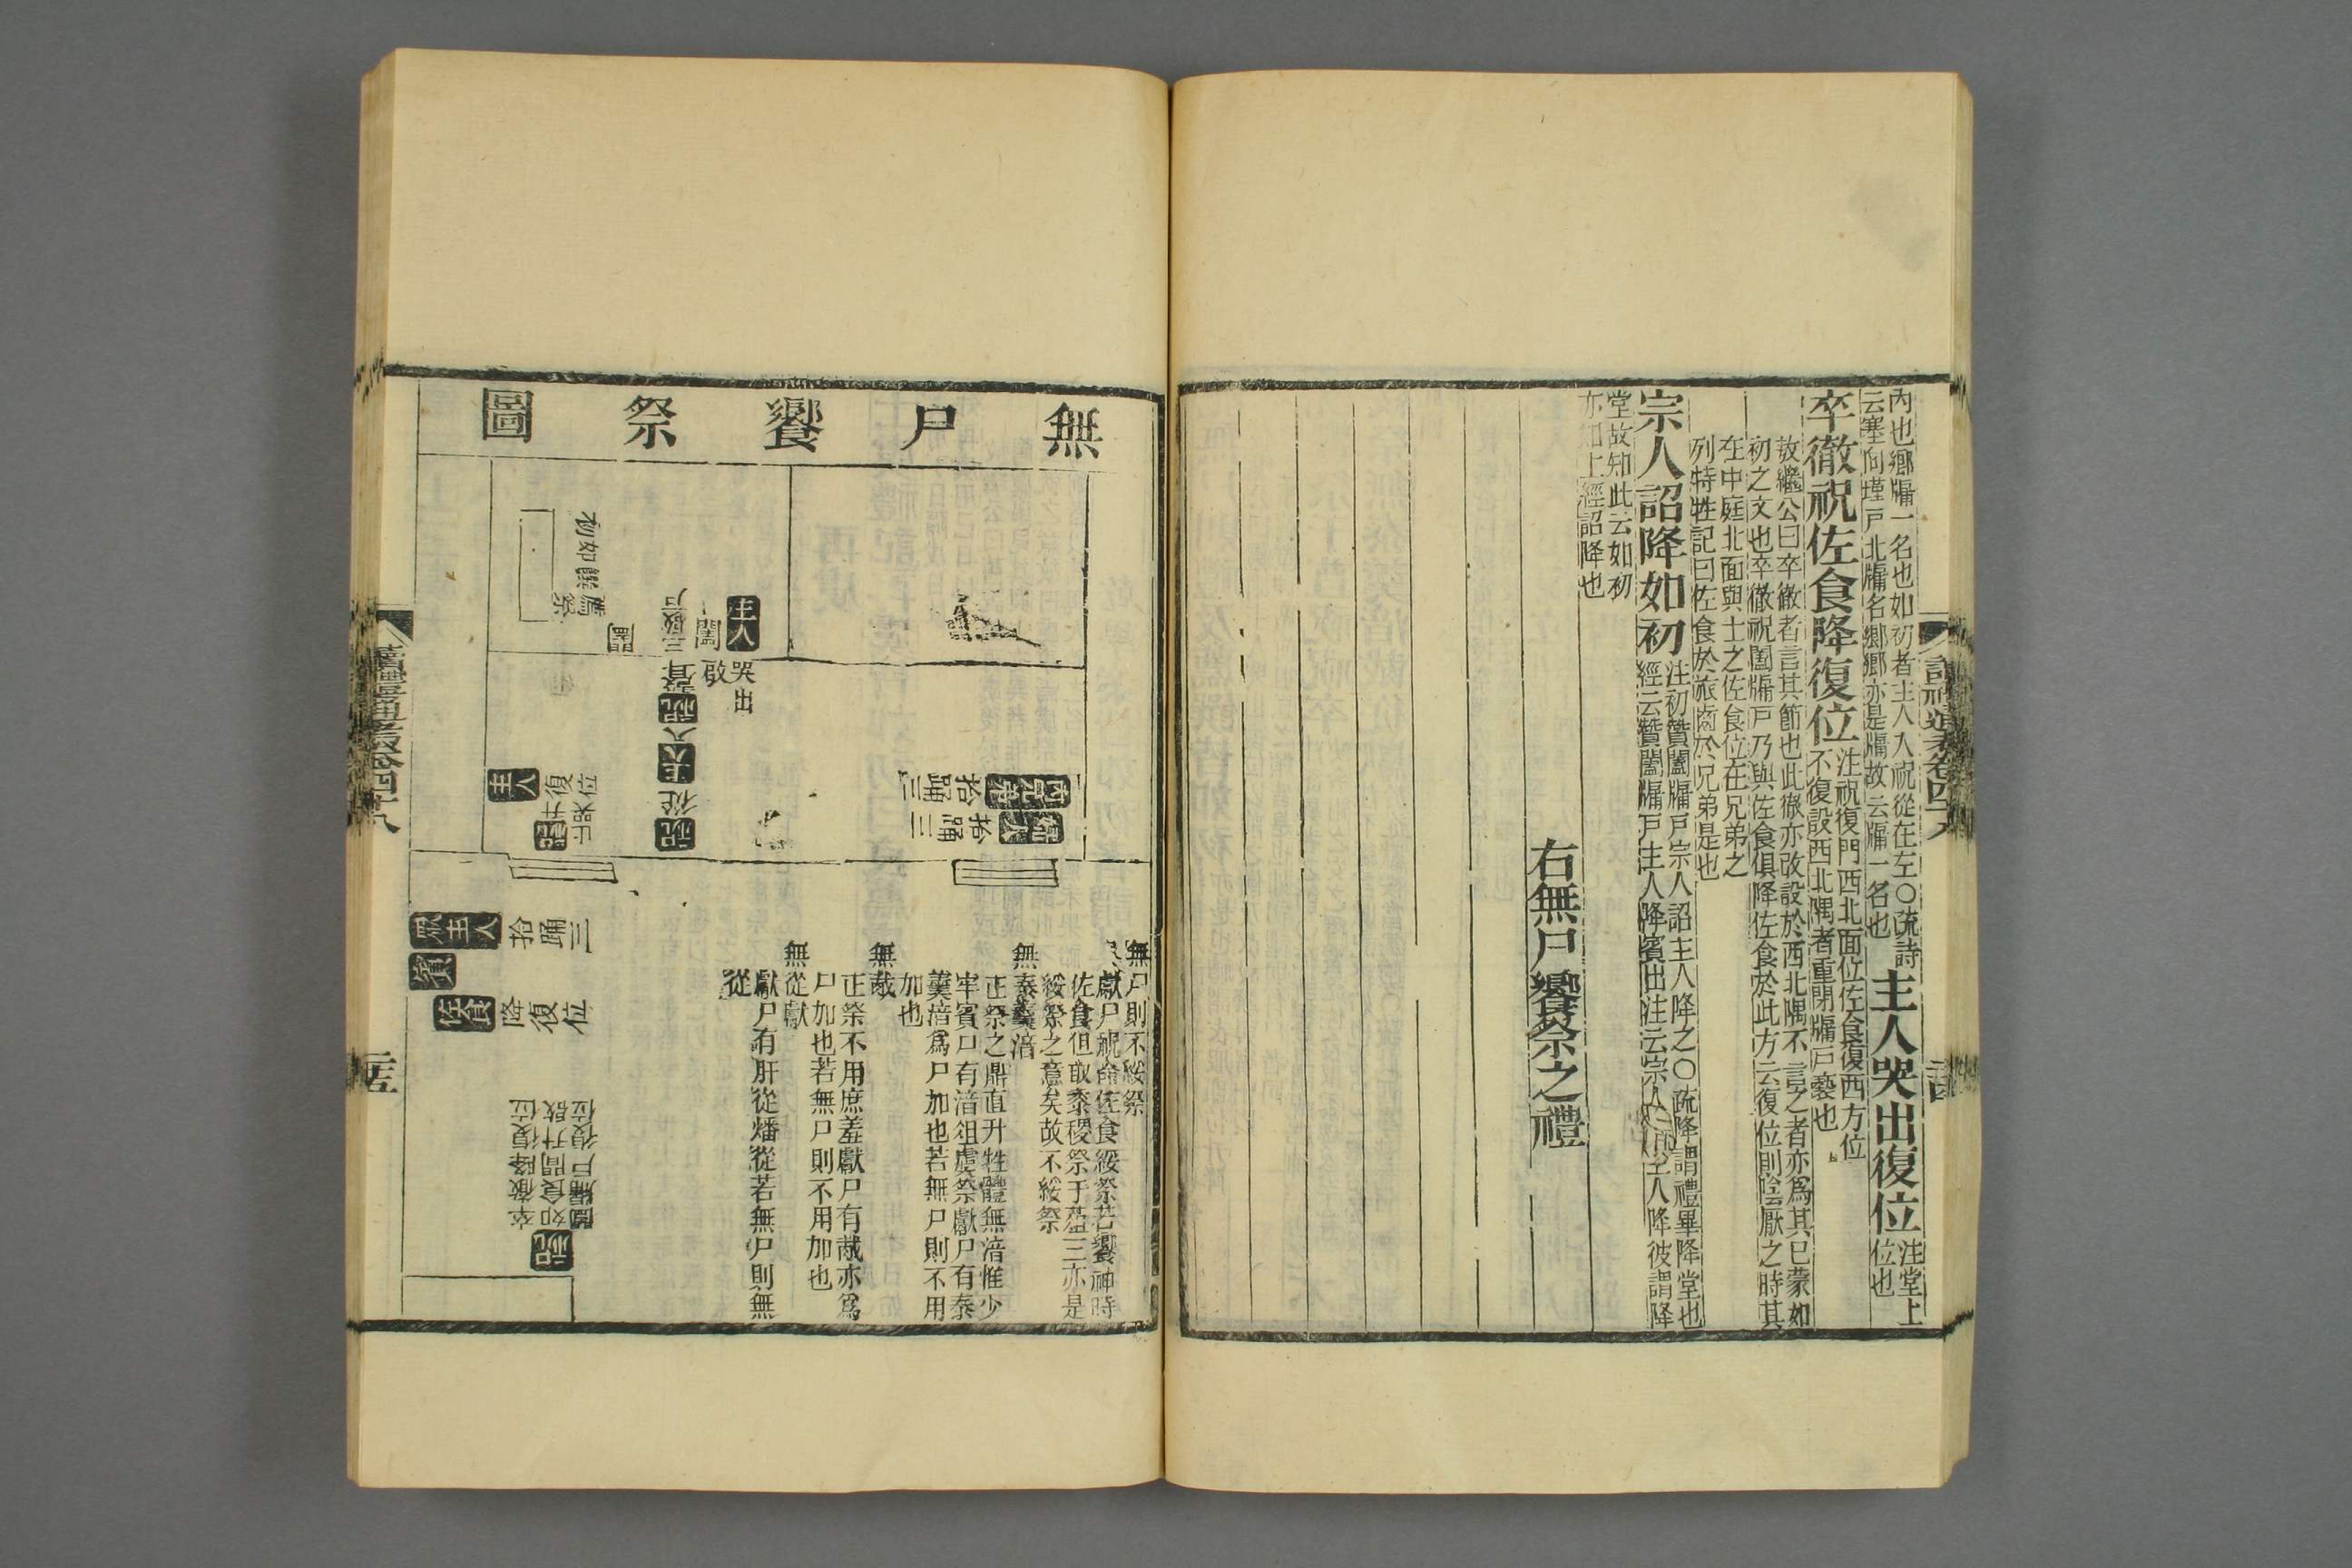 內也鄉牖一名也如初者主人入祝從在左〇疏詩
云塞向墐戶北牖名鄉鄉亦是牖故云牖一名也
主人哭出復位
注堂上
位也
卒徹祝佐食降復位
注祝復門西北面位佐食復西方位
不復設西北隅者重閉牖戶褻也
敖繼公曰卒徹者言其節也此徹亦改設於西北隅不言之者亦為其已蒙如
初之文也卒徹祝闔牖戶乃與佐食俱降佐食於此方云復位則陰厭之時其
在中庭北面與士之佐食位在兄弟之
列特牲記曰佐食於旅齒於兄弟是也
宗人詔降如初
注初贊闔牖戶宗人詔主人降之〇疏降謂禮畢降堂也
經云贊闔牖戶主人降賓出注云宗人詔主人降彼謂降
堂故知此云如初
亦如上經詔降也
右無尸饗祭之禮
無尸饗祭圖
主人
哭出
啟
三啟戶
聲
祝
入
主人
從
祝
如初
饌
闔
主人
祝
升
止哭
復位
內兄弟
拾踊三
婦人
拾踊三
眾主人
拾踊三
賓
佐食
降復位
祝
闔牖戶復位
如食間升啟
卒徹降復位
無尸則不綏祭
獻尸祝命佐食綏祭若饗神時
佐食但取黍稷祭于苴三亦是
綏祭之意矣故不綏祭
無泰羹湆
正祭之鼎直升牲體無湆惟少
牢賓尸有湆俎虞祭獻尸有泰
羹湆為尸加也若無尸則不用
加也
無胾
正祭不用庶羞獻尸有胾亦為
尸加也若無尸則不用加也
無從獻
獻尸有肝從燔從若無尸則無
從